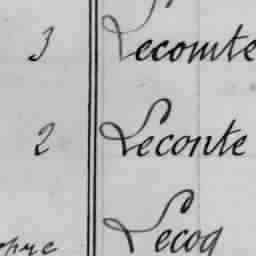 3 Lecomte
2 Leconte
Lecoq